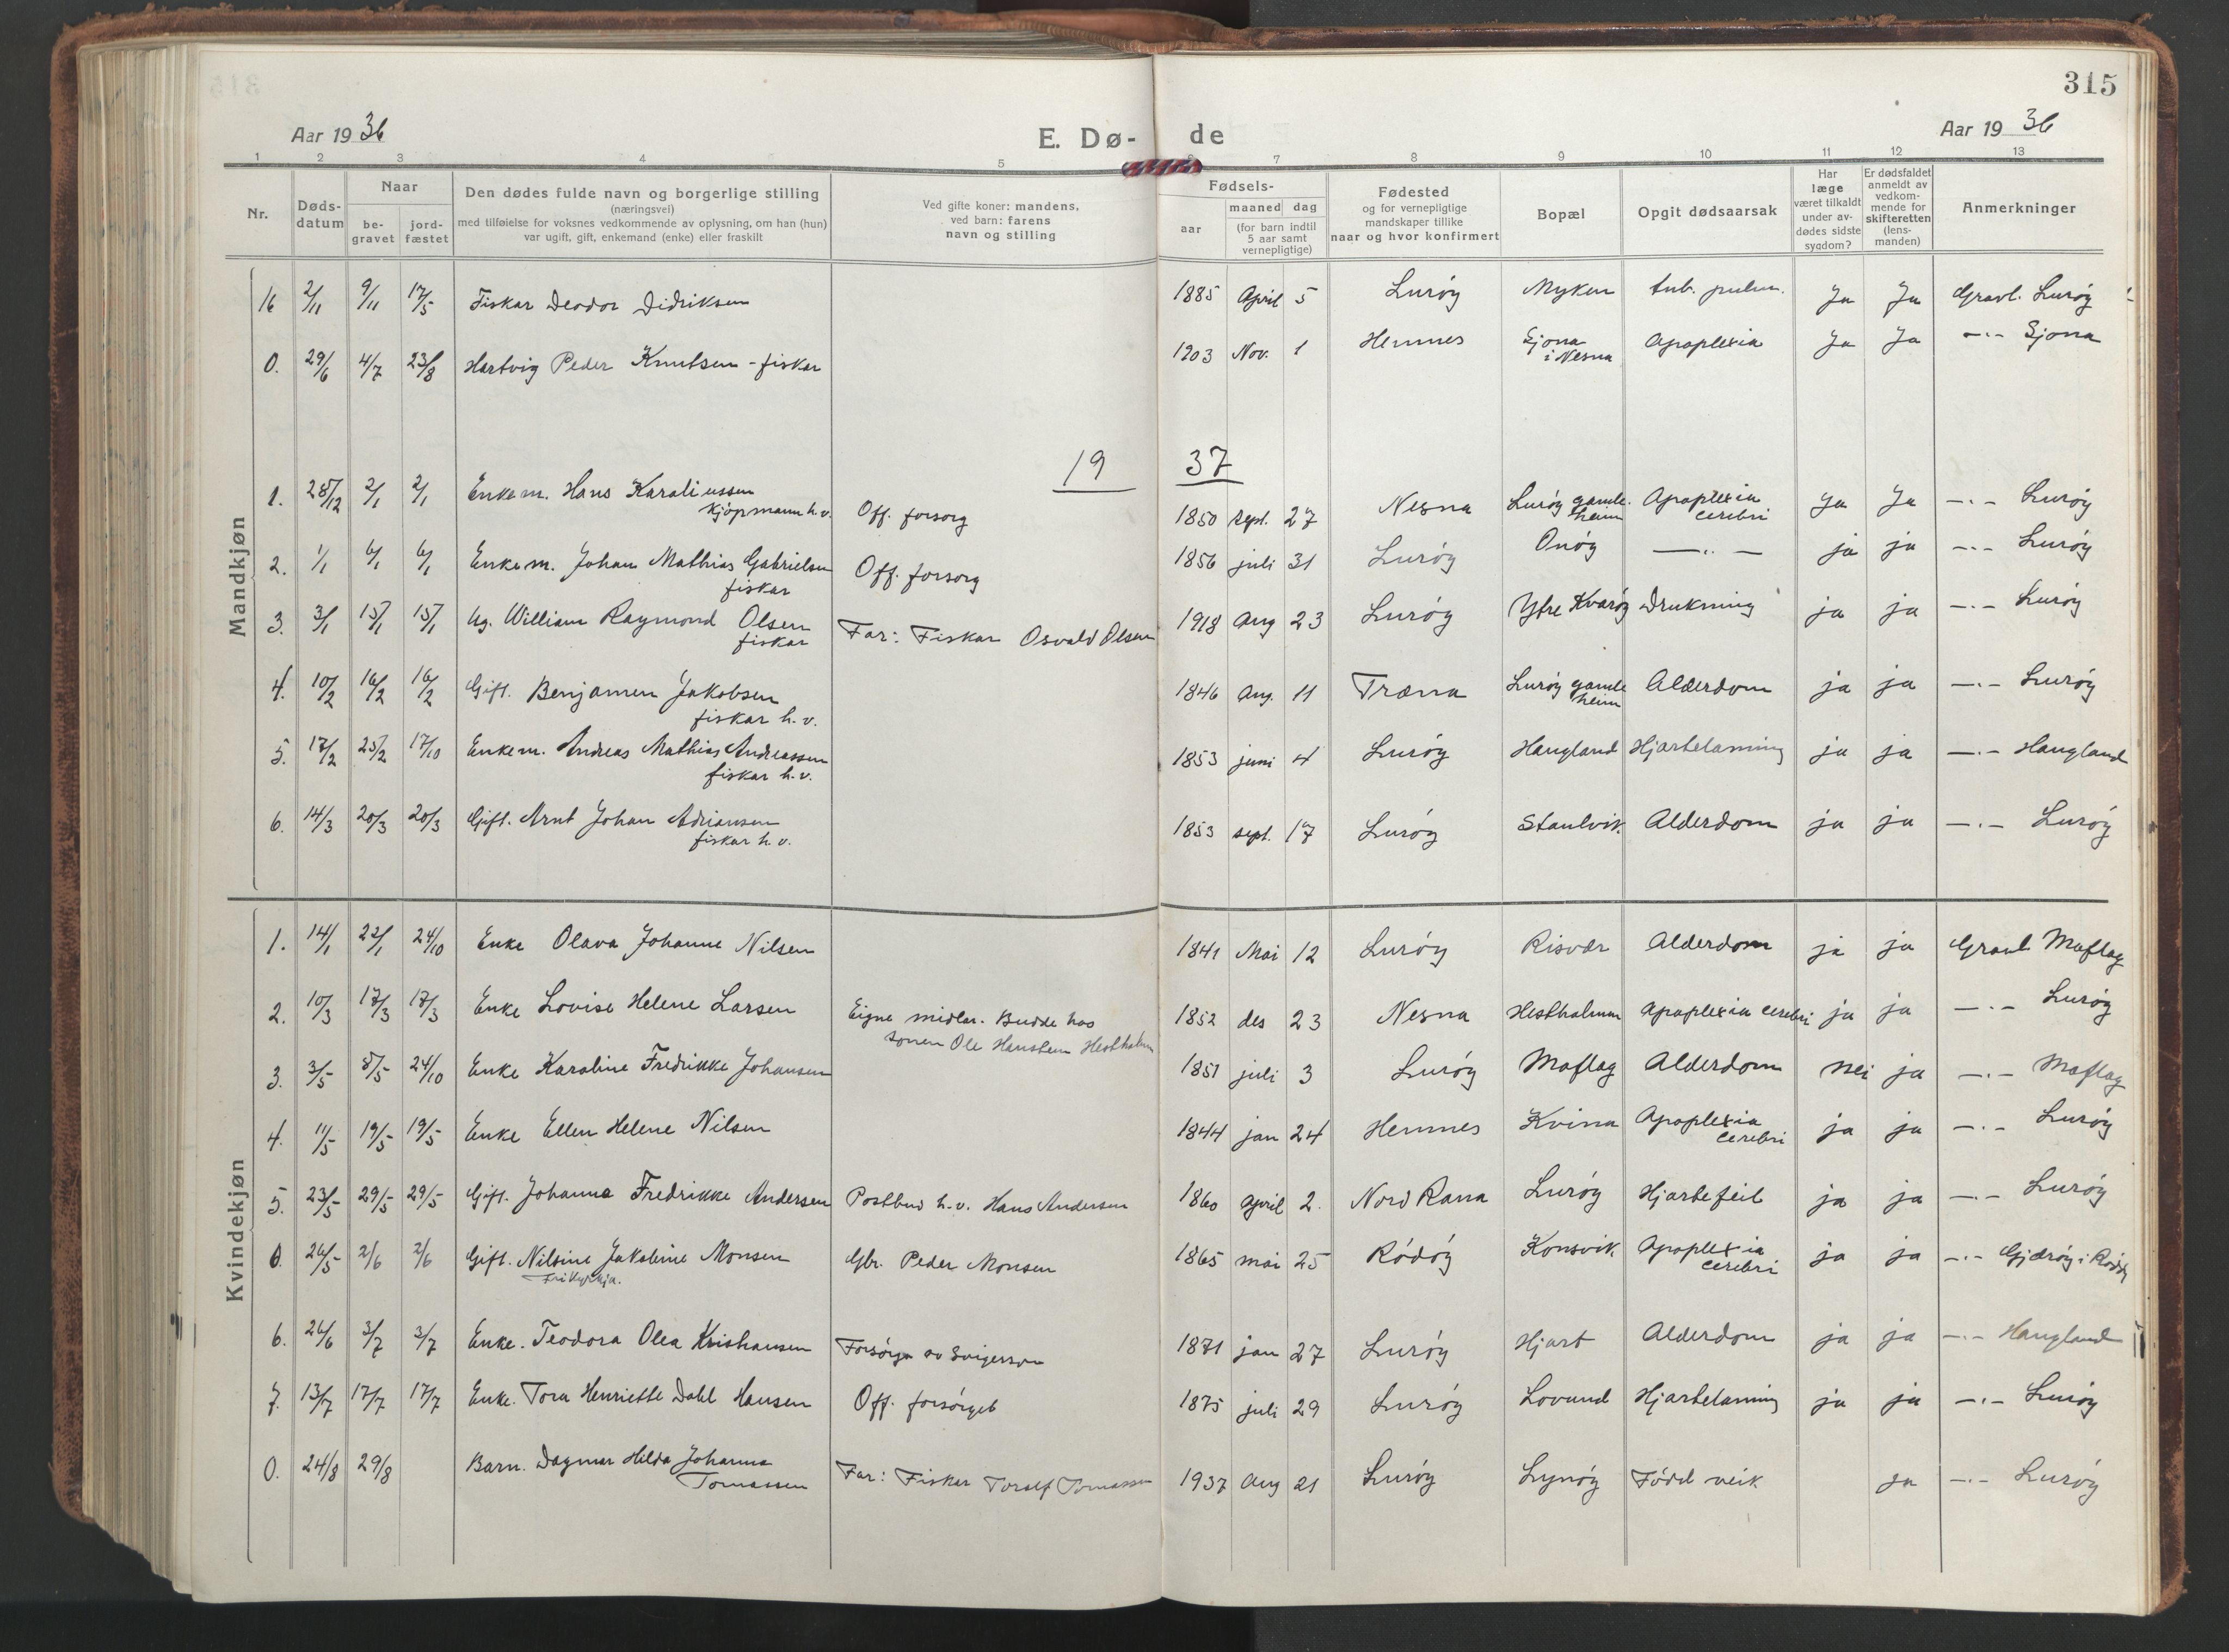 315
Aar 1936 E. Dø- de Aar 1936
1 2 3 4 5 6 7 8 9 10 11 12 13
Nr. Døds-datum Naar be-gravet jord-fæstet Den dødes fulde navn og borgerlige stilling (næringsvei) med tilføielse for voksnes vedkommende av oplysning, om han (hun) var ugift, gift, enkemand (enke) eller fraskilt Ved gifte koner: mandens, ved barn: farens navn og stilling Fødsels- aar maaned dag (for barn indtil 5 aar samt vernepligtige) Fødested og for vernepligtige mandskaper tillike naar og hvor konfirmert Bopæl Opgit dødsaarsak Har læge været tilkaldt under av-dødes sidste sygdom? Er dødsfaldet anmeldt av vedkom-mende for skifteretten (lens-manden) Anmerkninger
Mandkjøn
16 2/11 9/11 17/5 Fiskar Deodor Didriksen 1885 April 5 Lurøy Myken tub. pulm. Ja Ja Gravl. Lurøy
0. 29/6 4/7 23/8 Hartvig Peder Knutsen - fiskar 1903 Nov. 1 Hemnes Sjona i Nesna Apoplexia Ja Ja —.— Sjona
19 37
1. 28/12 2/1 2/1 Enkem. Hans Karoliussen kjøpmann h.v. Off. forsorg 1850 sept. 27 Nesna Lurøy gamle-heim Apoplexia cerebri Ja Ja —.— Lurøy
2. 1/1 6/1 6/1 Enkem. Johan Mathias Gabrielsen fiskar Off. forsorg 1856 juli 31 Lurøy Onøy —..— ja ja —.— Lurøy
3. 3/1 15/1 15/1 Ug. William Raymond Olsen fiskar Far: Fiskar Osvald Olsen 1918 Aug 23 Lurøy Ytre Kvarøy Drukning ja ja —.— Lurøy
4. 10/2 16/2 16/2 Gift. Benjamen Jakobsen fiskar h.v. 1846 Aug. 11 Træna Lurøy gamle heim Alderdom ja ja —.— Lurøy
5. 17/2 25/2 17/10 Enkem. Andreas Mathias Andreassen fiskar h.v. 1853 juni 4 Lurøy Haugland Hjartelaming ja ja —.— Haugland
6. 14/3 20/3 20/3 Gift. Arnt Johan Adriansen fiskar h.v. 1853 sept. 17 Lurøy Staulvik Alderdom ja ja —.— Lurøy
Kvindekjøn
1. 14/1 22/1 24/10 Enke Olava Johanne Nilsen 1841 Mai 12 Lurøy Risvær Alderdom ja ja Gravl Moflag
2. 10/3 17/3 17/3 Enke Lovise Helene Larsen Eigne midlar. Budde hos sonen Ole Hanstein Hestholmen 1852 des 23 Nesna Hestholmen Apoplexia cerebri ja ja —.— Lurøy
3. 3/5 8/5 24/10 Enke Karoline Fredrikke Johansen 1851 juli 3 Lurøy Moflag Alderdom nei ja —.— Moflag
4. 11/5 19/5 19/5 Enke Ellen Helene Nilsen 1844 jan 24 Hemnes Kvina Apoplexia cerebri ja ja —.— Lurøy
5. 23/5 29/5 29/5 Gift. Johanna Fredrikke Andersen Postbud h.v. Hans Andersen 1860 april 2. Nord Rana Lurøy Hjartefeil ja ja —.— Lurøy
0. 26/5 2/6 2/6 Gift. Nilsine Jakobine Monsen Frikyrkja. Gbr. Peder Monsen 1865 mai 25 Rødøy Konsvik Apoplexia cerebri ja ja —.— Gjerøy i Rødøy
6. 26/6 3/7 3/7 Enke. Teodora Olea Kristiansen Forsørga av Svigerson 1871 jan 27 Lurøy Hjart Alderdom ja ja —.— Haugland
7. 13/7 17/7 17/7 Enke. Tora Henriette Dahl Hansen Off. forsørget 1875 juli 29 Lurøy Lovund Hjartelaming ja ja —.— Lurøy
0. 24/8 29/8 Barn. Dagmar Hilda Johanna Tomassen Far: Fiskar Toralf Tomassen 1937 Aug 21 Lurøy Lynøy Fødd veik ja —.— Lurøy